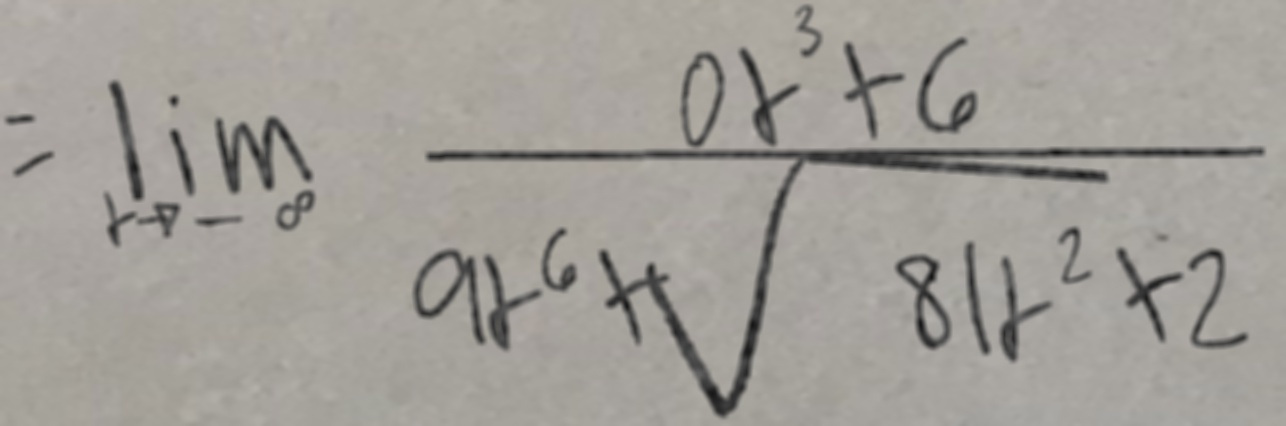 = lim t→-∞ (0t³+6)/(9t⁶+√(81t²+2))